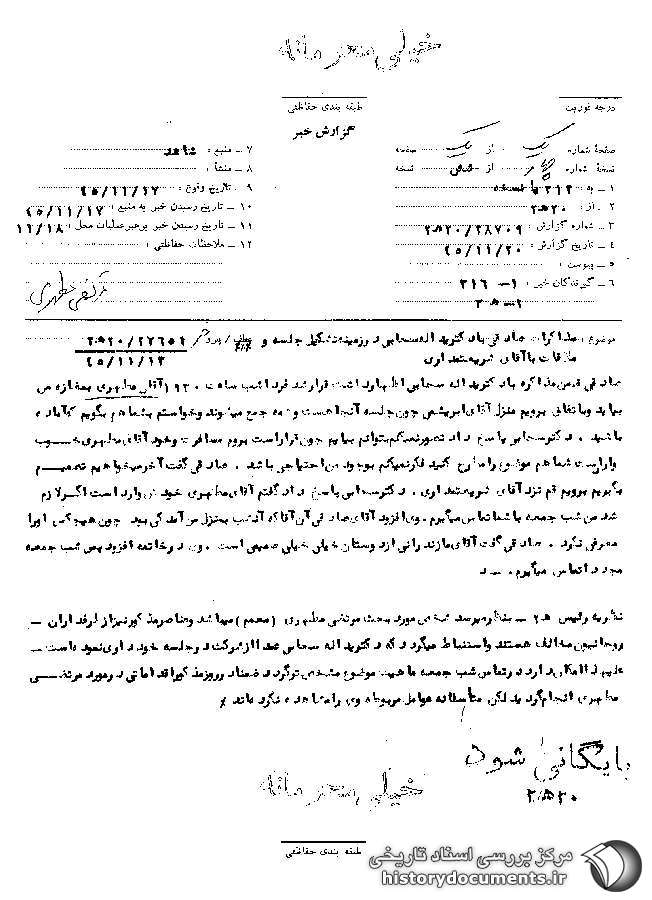 خیلی محرمانه
درجه فوریت
طبقه بندی حفاظتی
گزارش خبر
صفحه شماره یک از یک صفحه
نسخه شماره از نسخه
۱ ـ به ۳۱۲
۲ ـ از : ۲۰ﻫ۲
۳ ـ شماره گزارش : ۲۰ﻫ۲/۲۸۷۰۹
۴ ـ تاریخ گزارش : ۴۵/۱۱/۲۰
۵ ـ پیوست :
۶ ـ گیرندگان خبر : ۱ـ ۳۱۶
۷ ـ منبع : شاهد
۸ ـ منشأ :
۹ ـ تاریخ وقوع : ۴۵/۱۱/۱۷
۱۰ ـ تاریخ رسیدن خبر به منبع : ۴۵/۱۱/۱۷
۱۱ ـ تاریخ رسیدن خبر برهبر عملیات محل : ۱۱/۱۸
۱۲ ـ ملاحظات حفاظتی :
مرتضی مطهری
موضوع : مذاکرات صادقی با دکتر یداله سحابی در زمینه تشکیل جلسه و ۲۰ﻫ۲/۲۲۶۵۱
ملاقات با آقای شریعتمداری ۴۵/۱۱/۱۳
صادقی ضمن مذاکره با دکتر یداله سحابی اظهار داشت قرار شد فردا شب ساعت ۱۹۳۰ آقای مطهری بمغازه من
بیاید و باتفاق برویم منزل آقای ابریشمی چون جلسه آنجا هست و همه جمع میشوند و خواستم بشما هم بگویم که آماده
باشید . دکتر سحابی پاسخ داد تصور نمیکنم بتوانم بیایم چون قرار است بروم مسافرت و خود آقای مطهری خوب
وارد است شما هم موضوع را مطرح کنید فکر نمیکنم بوجود من احتیاجی باشد . صادقی گفت آخر میخواهیم تصمیم
بگیریم برویم قم نزد آقای شریعتمداری . دکتر سحابی پاسخ داد گفتم آقای مطهری خودش وارد است اگر لازم
شد من شب جمعه با شما تماس میگیرم . وی افزود آقای صادقی آن آقا که آنشب بمنزل من آمد کی بود چون هیچکس او را
معرفی نکرد . صادقی گفت آقای مازندرانی از دوستان خیلی خیلی صمیمی است . وی در خاتمه افزود پس شب جمعه
مجددا تماس میگیرم .
نظریه رئیس ـ بنظر میرسد شخص مورد بحث مرتضی مطهری (معمم) میباشد و عناصر مذکور نیز از طرفداران
روحانیون مخالف هستند و استنباط میگردد که دکتر یداله سحابی عمدا از شرکت در جلسه خودداری نموده است
علیهذا امکان دارد در تماس شب جمعه ماهیت موضوع مشخص تر گردد ضمنا در روز مذکور اقداماتی در مورد مرتضی
مطهری انجام گردید لکن متأسفانه عوامل مربوطه وی را مشاهده نکرده اند
بایگانی شود
۲۰ﻫ۲
خیلی محرمانه
طبقه بندی حفاظتی
مرکز بررسی اسناد تاریخی
historydocuments.ir